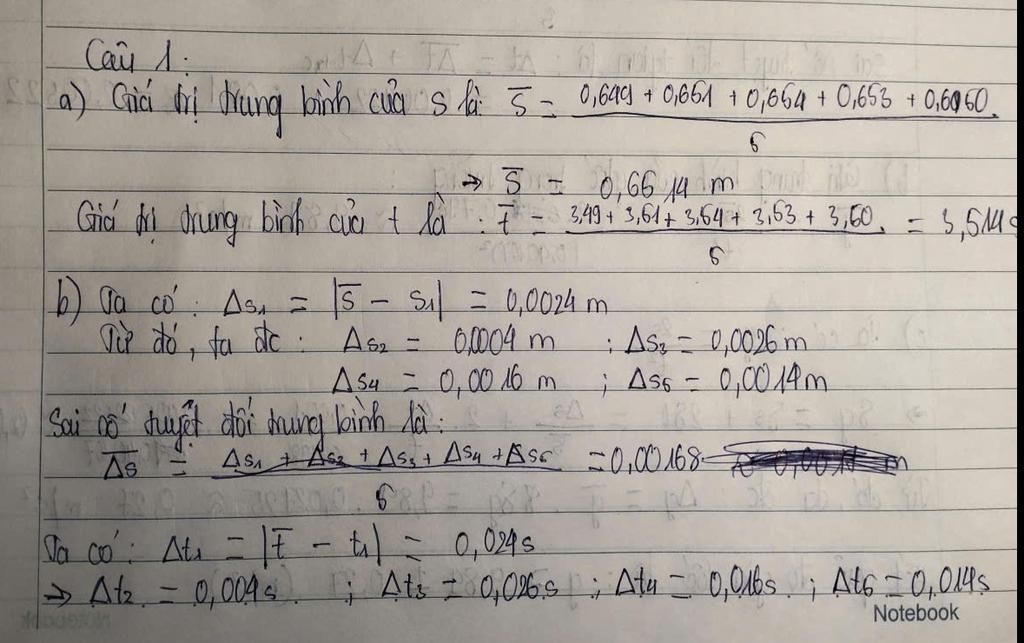 Câu 1:
a) Giá trị trung bình của s là: s̅ = (0,649 + 0,651 + 0,654 + 0,653 + 0,650) / 5
→ s̅ = 0,6514 m
Giá trị trung bình của t là: t̅ = (3,49 + 3,51 + 3,54 + 3,53 + 3,50) / 5 = 3,514s
b) Ta có: Δs₁ = |s̅ − s₁| = 0,0024 m
Từ đó, ta đc: Δs₂ = 0,0004 m ; Δs₃ = 0,0026m
Δs₄ = 0,0016 m ; Δs₅ = 0,0014m
Sai số tuyệt đối trung bình là:
Δs̅ = (Δs₁ + Δs₂ + Δs₃ + Δs₄ + Δs₅) / 5 = 0,00168 m
Ta có: Δt₁ = |t̅ − t₁| = 0,024s
→ Δt₂ = 0,004s ; Δt₃ = 0,026s ; Δt₄ = 0,016s ; Δt₅ = 0,014s
Notebook